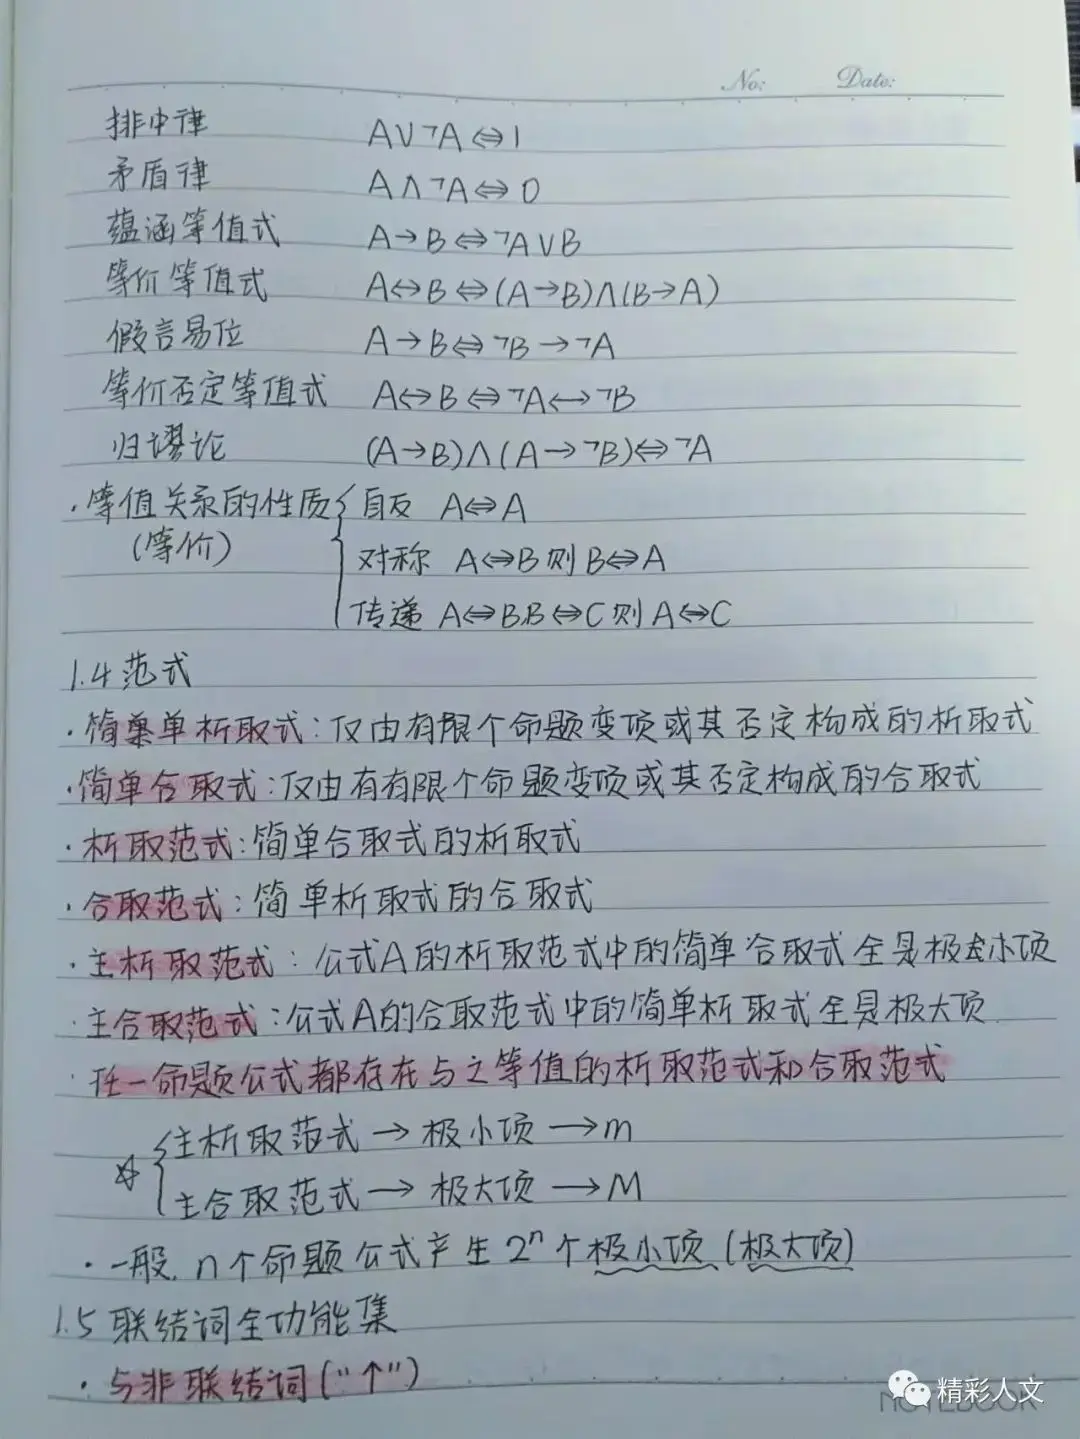 No: Date:
排中律 A∨¬A⇔1
矛盾律 A∧¬A⇔0
蕴涵等值式 A→B⇔¬A∨B
等价等值式 A↔B⇔(A→B)∧(B→A)
假言易位 A→B⇔¬B→¬A
等价否定等值式 A↔B⇔¬A↔¬B
归谬论 (A→B)∧(A→¬B)⇔¬A
·等值关系的性质{自反 A⇔A
(等价) 对称 A⇔B则B⇔A
传递 A⇔B,B⇔C则A⇔C
1.4范式
·简单析取式:仅由有限个命题变项或其否定构成的析取式
·简单合取式:仅由有有限个命题变项或其否定构成的合取式
·析取范式:简单合取式的析取式
·合取范式:简单析取式的合取式
·主析取范式:公式A的析取范式中的简单合取式全是极小项
·主合取范式:公式A的合取范式中的简单析取式全是极大项
·任一命题公式都存在与之等值的析取范式和合取范式
☆{主析取范式→极小项→m
主合取范式→极大项→M
·一般,n个命题公式产生2ⁿ个极小项(极大项)
1.5联结词全功能集
·与非联结词("↑")
NOTEBOOK
精彩人文